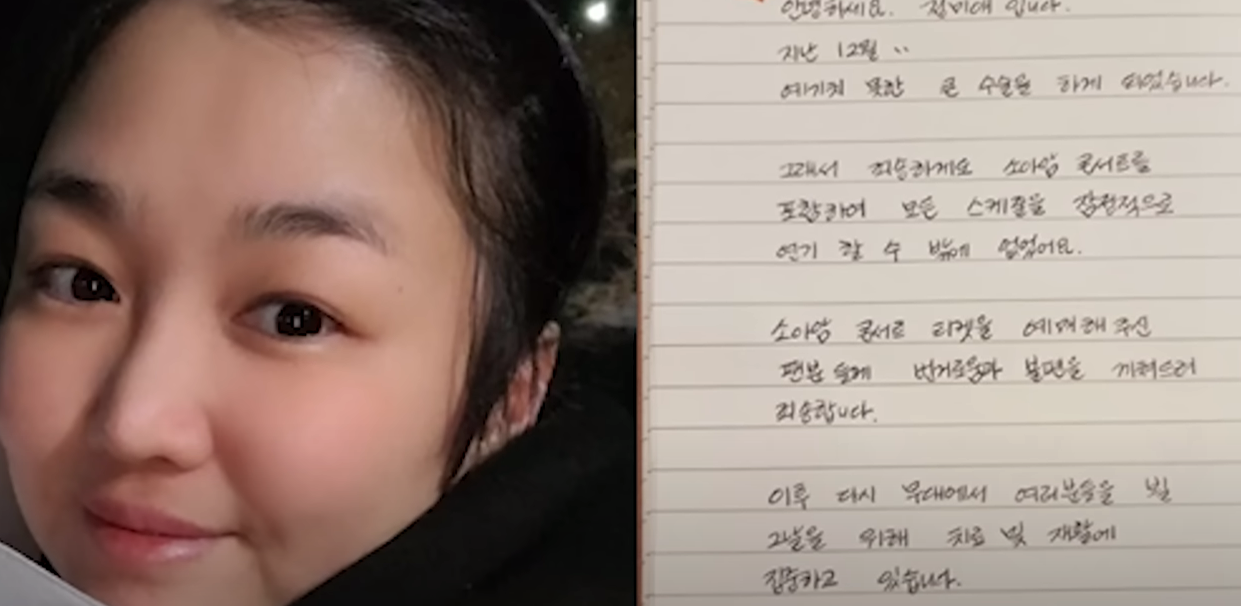 안녕하세요. 정미애 입니다.
지난 12월 ..
예기치 못한 큰 수술을 하게 되었습니다.
그래서 죄송하게도 소아암 콘서트를
포함하여 모든 스케줄을 잠정적으로
연기 할 수 밖에 없었어요.
소아암 콘서트 티켓을 예매해 주신
팬분들께 번거로움과 불편을 끼쳐드려
죄송합니다.
이후 다시 무대에서 여러분들을 뵐
그날을 위해 치료 및 재활에
집중하고 있습니다.